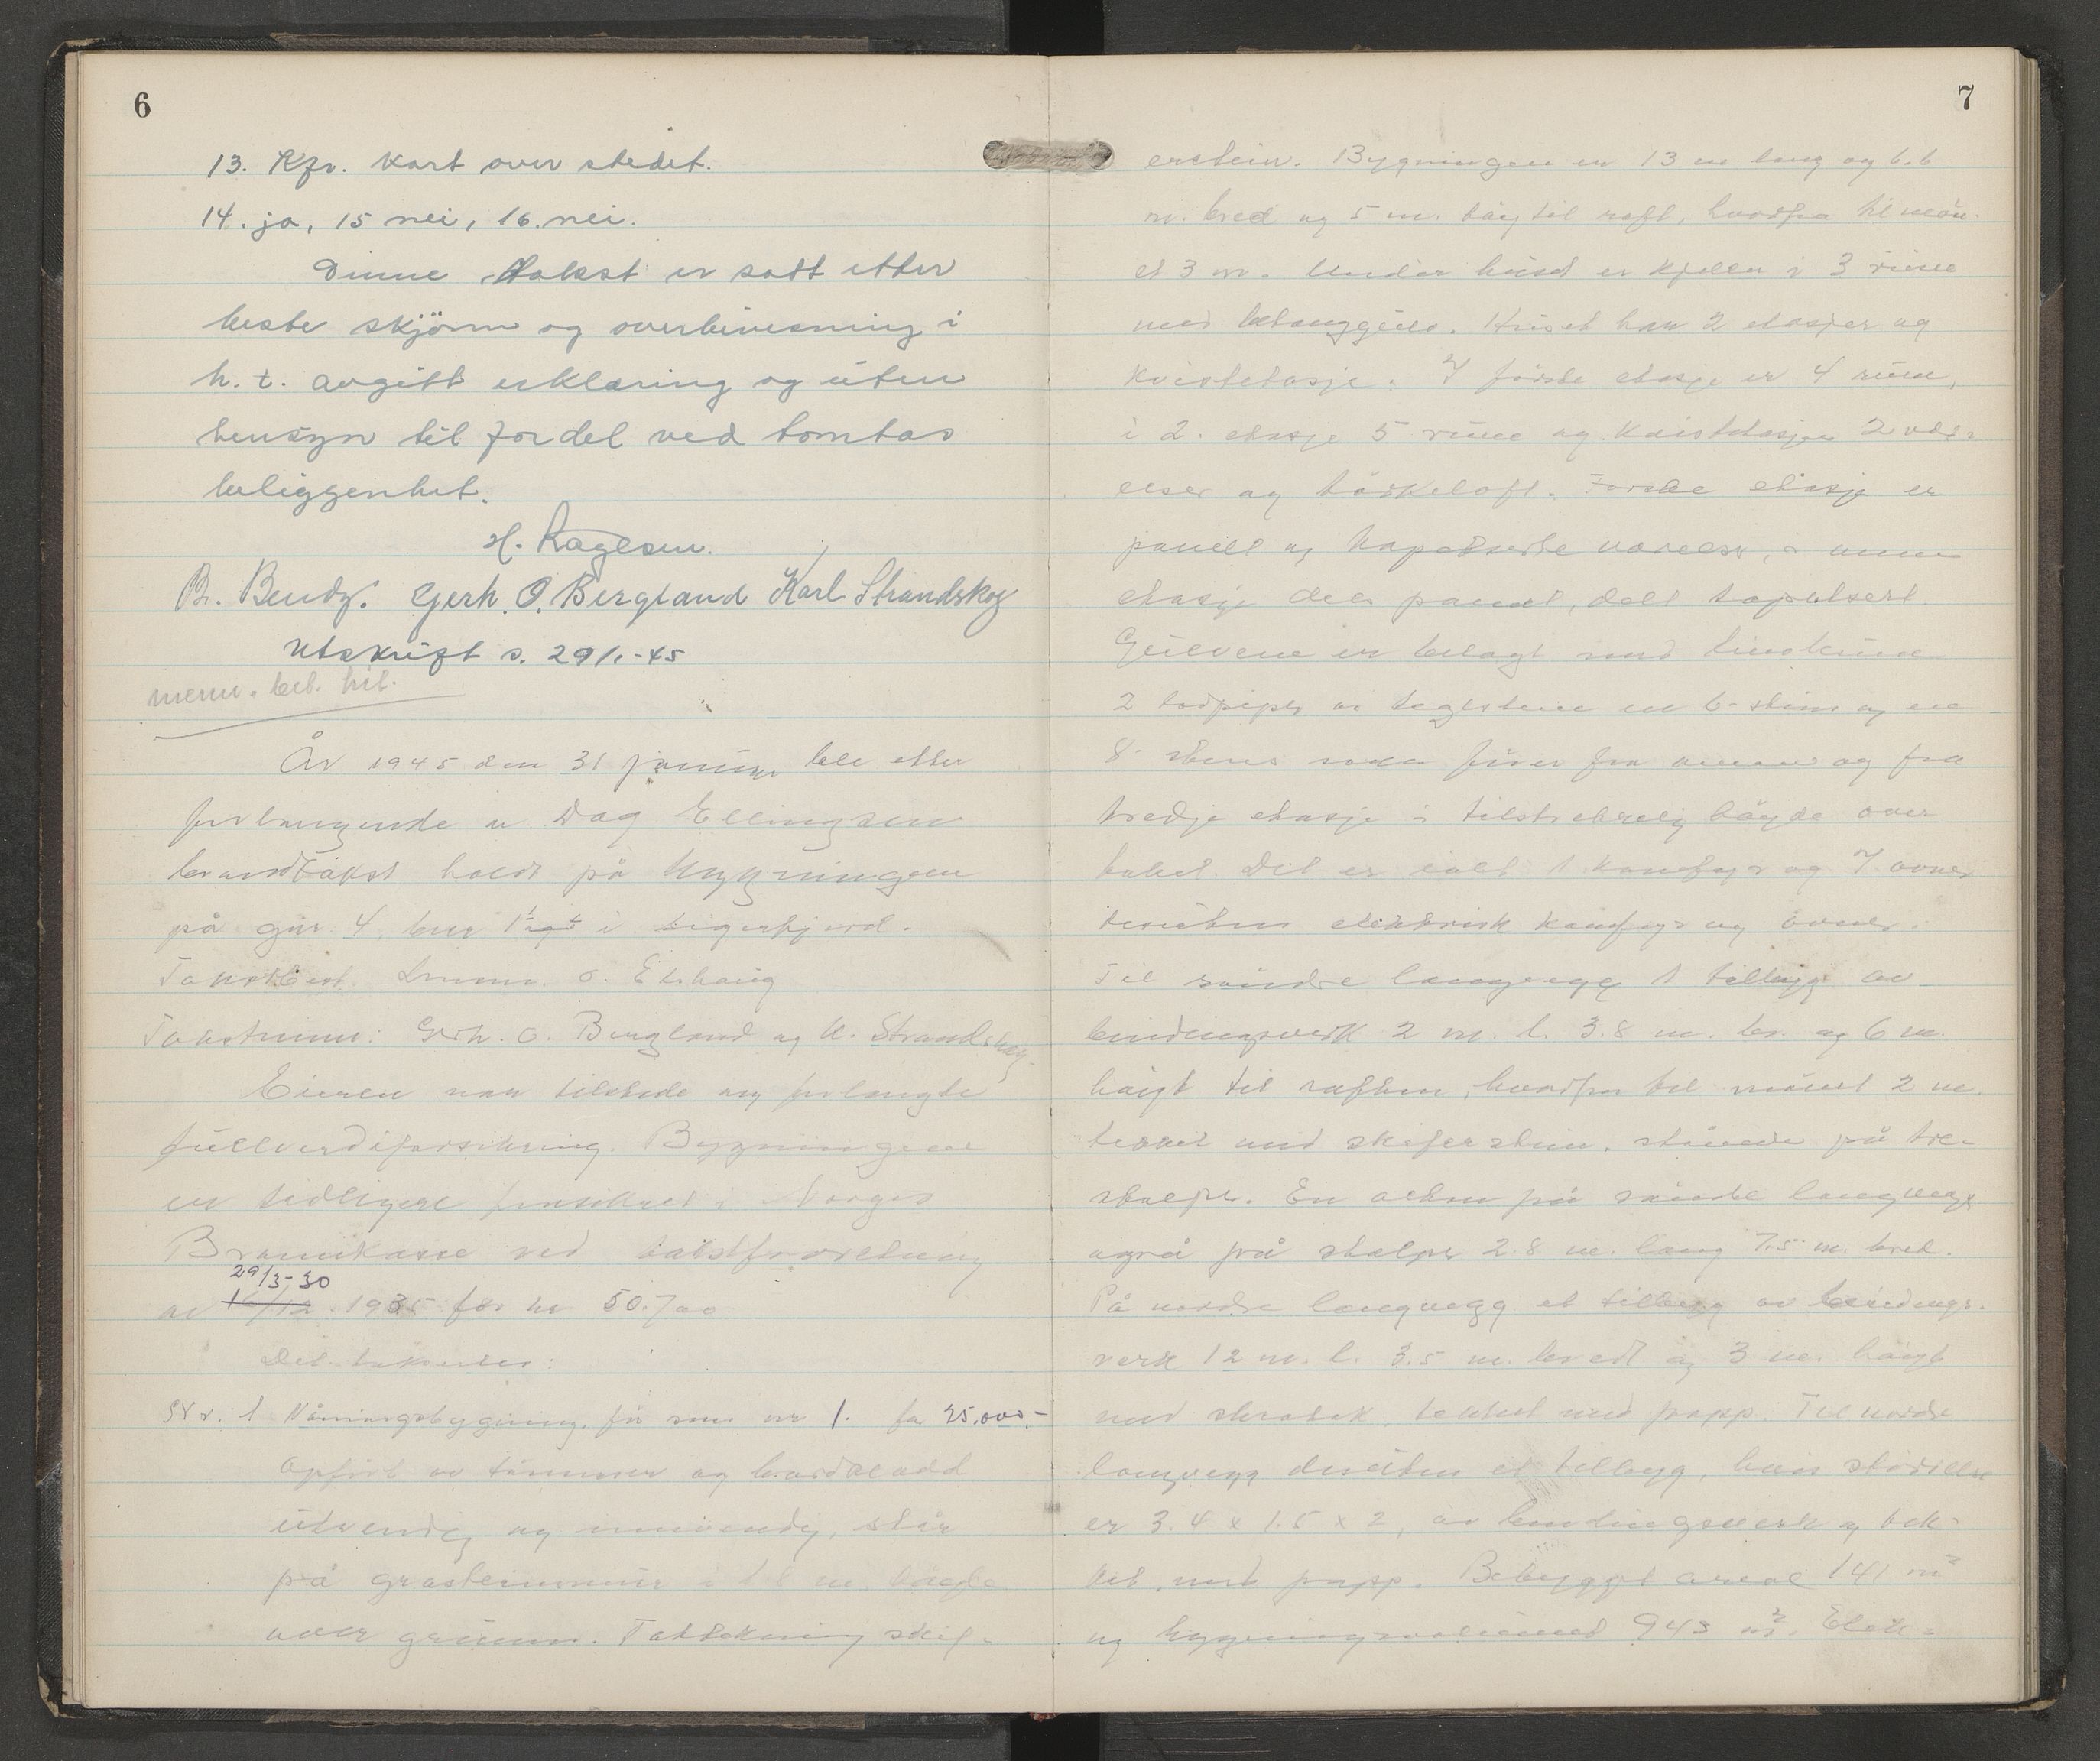 6
13. Kfr. kart over stedet.
14. ja, 15 nei, 16. nei.
Denne takst er satt etter
beste skjönn og overbevisning i
h. t. avgitt erklæring og uten
hensyn til fordel ved tomtas
beliggenhet.
H. Kagesen.
B. Bendz. Gerh. O. Bergland Karl Strandskog
Utskrift s. 29/1-45
År 1945 den 31 januar ble etter
forlangende av Dag Ellingsen
branntakst holdt på bygningene
på gnr 4 bnr 1 i Sigerfjord.
Takstbest. Lensm. O. Elshaug
Takstmenn: Gerh. O. Bergland og K. Strandskog.
Eieren var tilstede og forlangte
fullverdiforsikring. Bygningene
er tidligere forsikret i Norges
Brannkasse ved takstforretning
29/3-30
av 16/12 1935 for kr 50.700
Det takseres:
Nr. 1 Våningsbygning, för som nr 1. fa 25.000,-
Opfört av tömmer og bordkledd
utvendig og innvendig, står
på gråsteinsmur i m. höyde
over grunn. Taktekning skif-
7
erstein. Bygningen er 13 m lang og 6.6
m. bred og 5 m. höy til raft, hvorfra til mön-
et 3 m. Under huset er kjeller i 3 rum
med betonggulv. Huset har 2 etasjer og
kvistetasje. I förste etasje er 4 rum,
i 2. etasje 5 rum og kvistetasjen 2 vær-
elser og törkeloft. Förste etasje er
panelt og tapetserte værelser, i annen
etasje dels panelt, delt tapetsert.
Gulvene er belagt med linoleum
2 rödpiper av teglstein en 6-steins og en
8-steins som förer fra annen og fra
tredje etasje i tilstrekkelig höyde over
taket. Det er ialt 1 komfyr og 7 ovner
desuten elektrisk komfyr og ovner.
Til söndre langvegg 1 tilbygg av
bindingsverk 2 m. l. 3.8 m. br. og 6 m.
höigt til raften, hvorfra til mönet 2 m.
tekket med skiferstein, stående på tre-
stolper. En altan på söndre langvegg
også på stolper 2.8 m. lang 7.5 m. bred.
På nordre langvegg et tilbygg av bindings-
verk 12 m. l. 3.5 m. bredt og 3 m. höigt
med skråtak, tekket med papp. Til nordre
langvegg desuten et tilbygg, hvis störrelse
er 3.4 x 1.5 x 2, av bindingsverk og tek-
ket med papp. Bebygget areal 141 m²
og bygningsvolumet 943 m³. Elek-